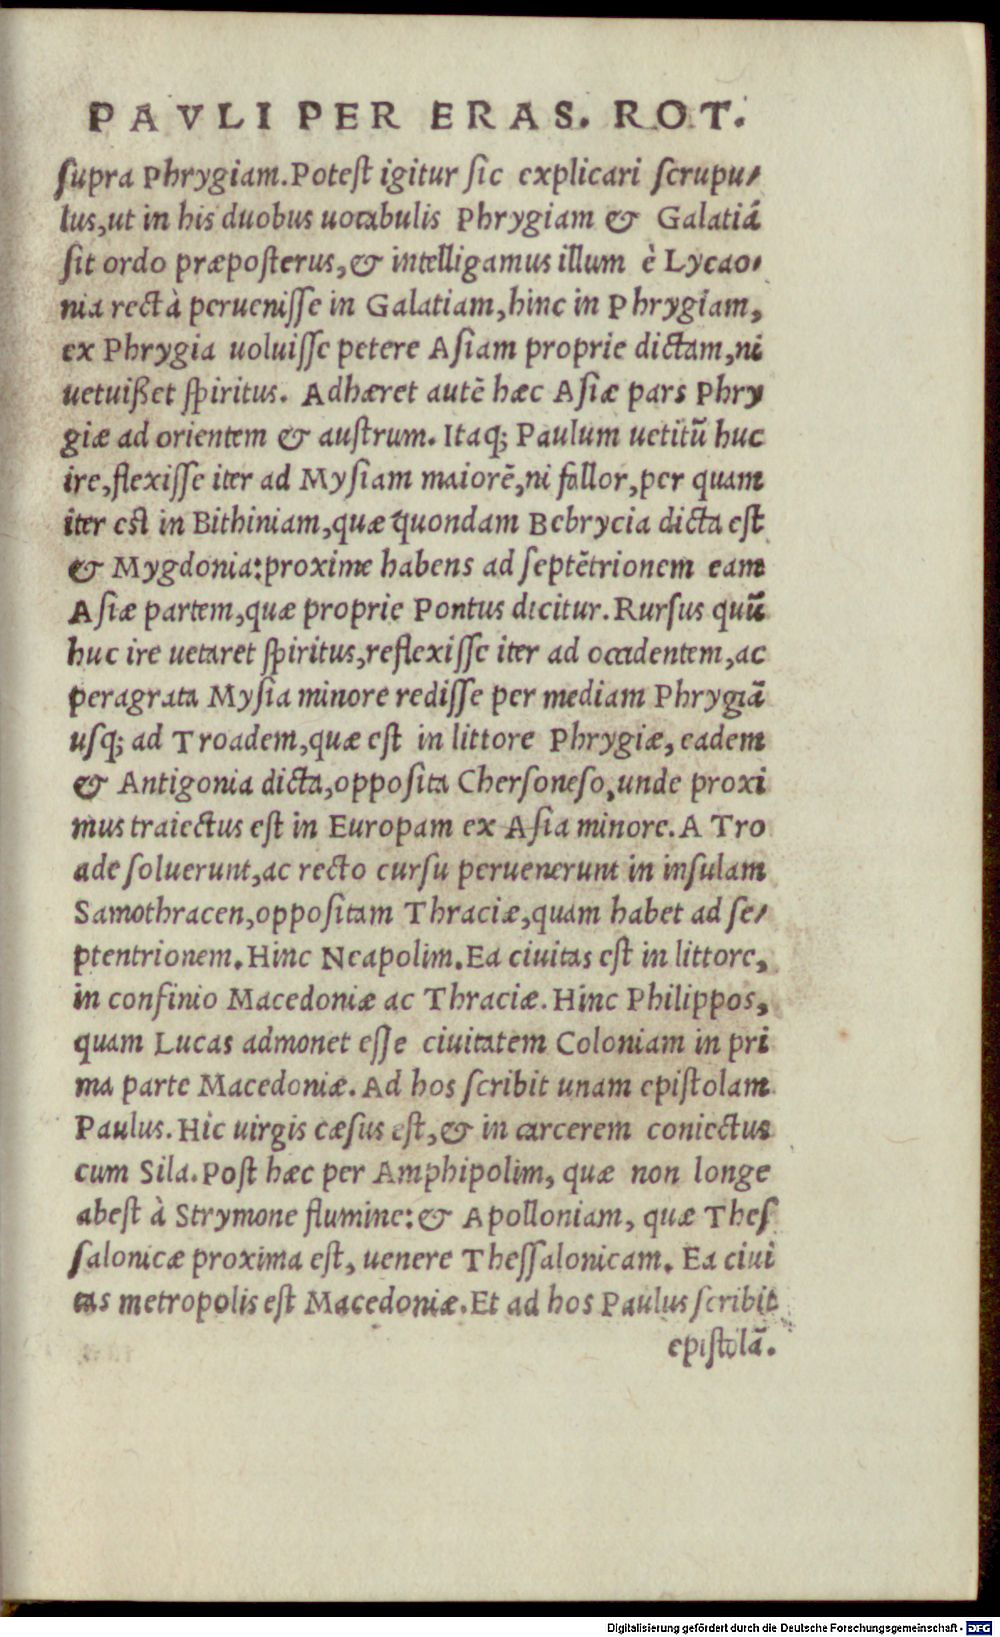 PAVLI PER ERAS. ROT.
supra Phrygiam. Potest igitur sic explicari scrupu-
lus, ut in his duobus uocabulis Phrygiam & Galatiã
sit ordo præposterus, & intelligamus illum è Lycao-
nia rectà peruenisse in Galatiam, hinc in Phrygiam,
ex Phrygia uoluisse petere Asiam proprie dictam, ni
uetuißet spiritus. Adhæret autẽ hæc Asiæ pars Phry
giæ ad orientem & austrum. Itaq; Paulum uetitũ huc
ire, flexisse iter ad Mysiam maiorẽ, ni fallor, per quam
iter est in Bithiniam, quæ quondam Bebrycia dicta est
& Mygdonia: proxime habens ad septẽtrionem eam
Asiæ partem, quæ proprie Pontus dicitur. Rursus quũ
huc ire uetaret spiritus, reflexisse iter ad occidentem, ac
peragrata Mysia minore redisse per mediam Phrygiã
usq; ad Troadem, quæ est in littore Phrygiæ, eadem
& Antigonia dicta, opposita Chersoneso, unde proxi
mus traiectus est in Europam ex Asia minore. A Tro
ade soluerunt, ac recto cursu peruenerunt in insulam
Samothracen, oppositam Thraciæ, quam habet ad se-
ptentrionem. Hinc Neapolim. Ea ciuitas est in littore,
in confinio Macedoniæ ac Thraciæ. Hinc Philippos,
quam Lucas admonet esse ciuitatem Coloniam in pri
ma parte Macedoniæ. Ad hos scribit unam epistolam
Paulus. Hic uirgis cæsus est, & in carcerem coniectus
cum Sila. Post hæc per Amphipolim, quæ non longe
abest à Strymone flumine: & Apolloniam, quæ Thes
salonicæ proxima est, uenere Thessalonicam. Ea ciui
tas metropolis est Macedoniæ. Et ad hos Paulus scribit
epistolã.
Digitalisierung gefördert durch die Deutsche Forschungsgemeinschaft - DFG